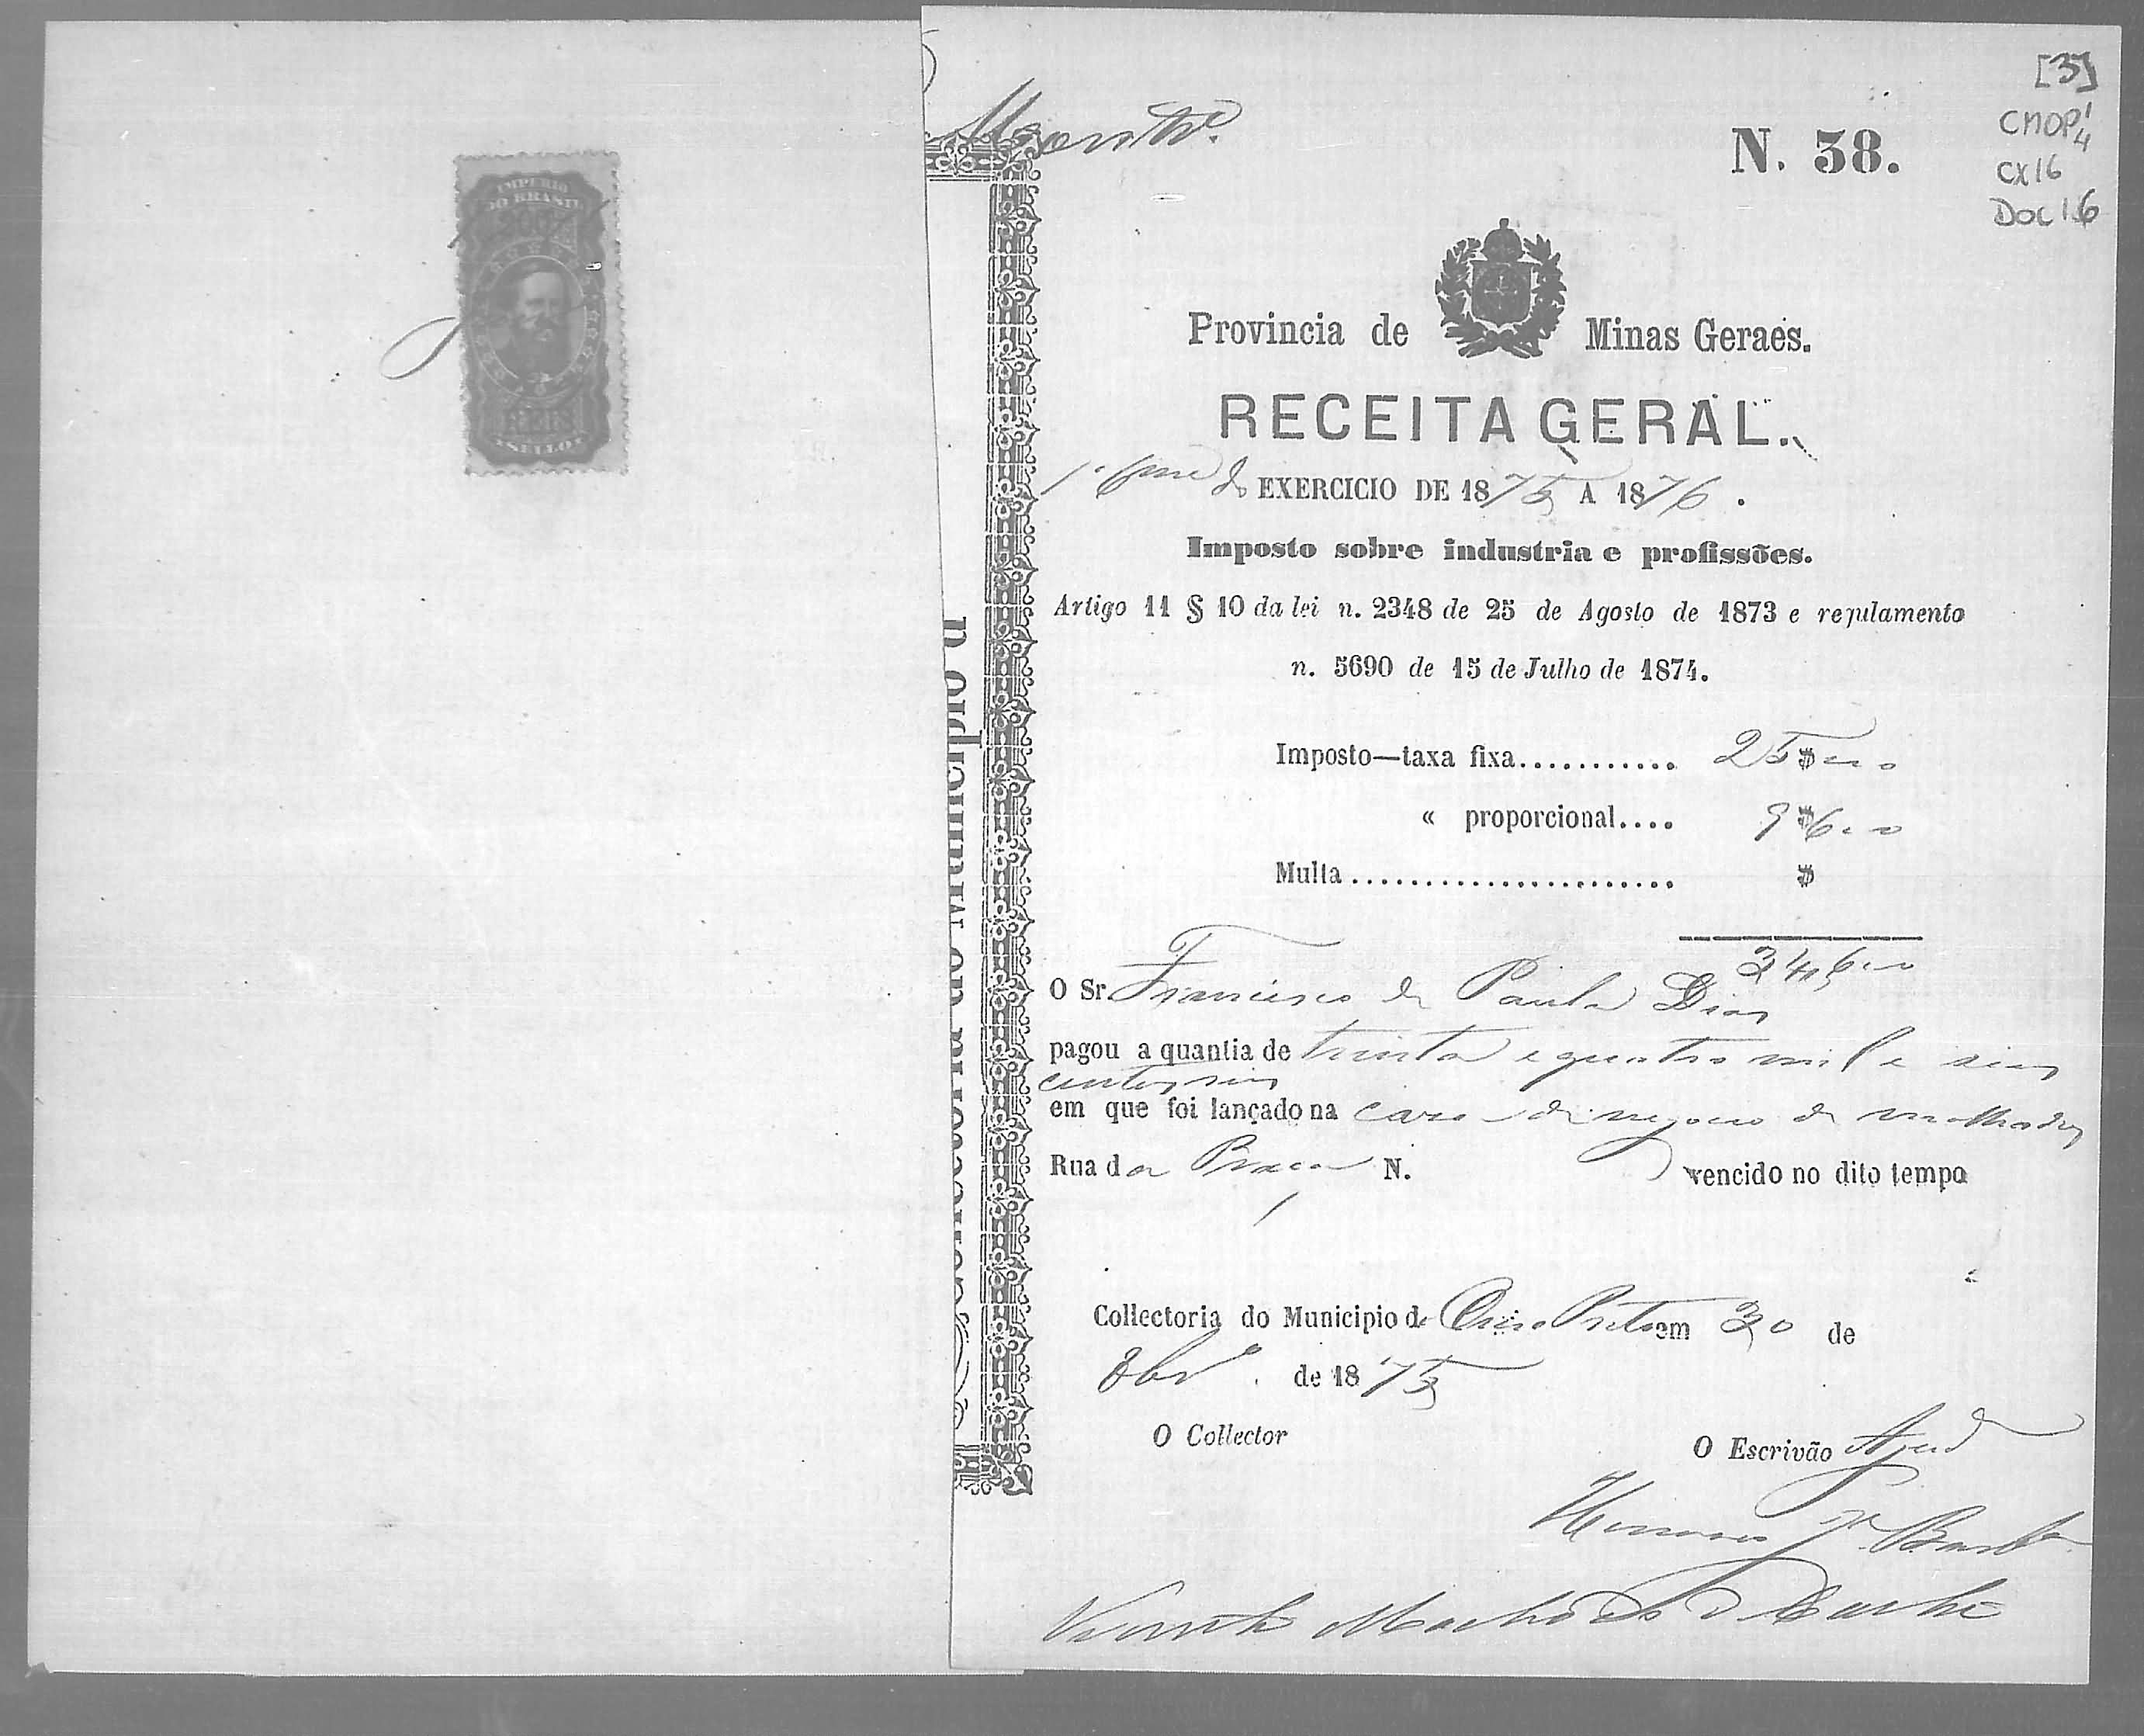 IMPERIO
DO BRASIL
REIS
SELLO
[3]
CMOP 1/4
CX 16
DOC 16
N. 38.
Provincia de Minas Geraes.
RECEITA GERAL.
1º EXERCICIO DE 1875 A 1876.
Imposto sobre industria e profissões.
Artigo 11 § 10 da lei n. 2348 de 25 de Agosto de 1873 e regulamento
n. 5690 de 15 de Julho de 1874.
Imposto—taxa fixa............ 25$000
« proporcional.... 9$600
Multa ...................... $
34$600
O Sr. Francisco de Paula Dias
pagou a quantia de trinta e quatro mil e seis
centos reis
em que foi lançado na casa de negocio de molhados
Rua da Praça N. vencido no dito tempo
Collectoria do Municipio de Ouro Preto em 30 de
8brº. de 1875
O Collector
O Escrivão Ajud
Vicente Machado de
Collectoria do Municipio d